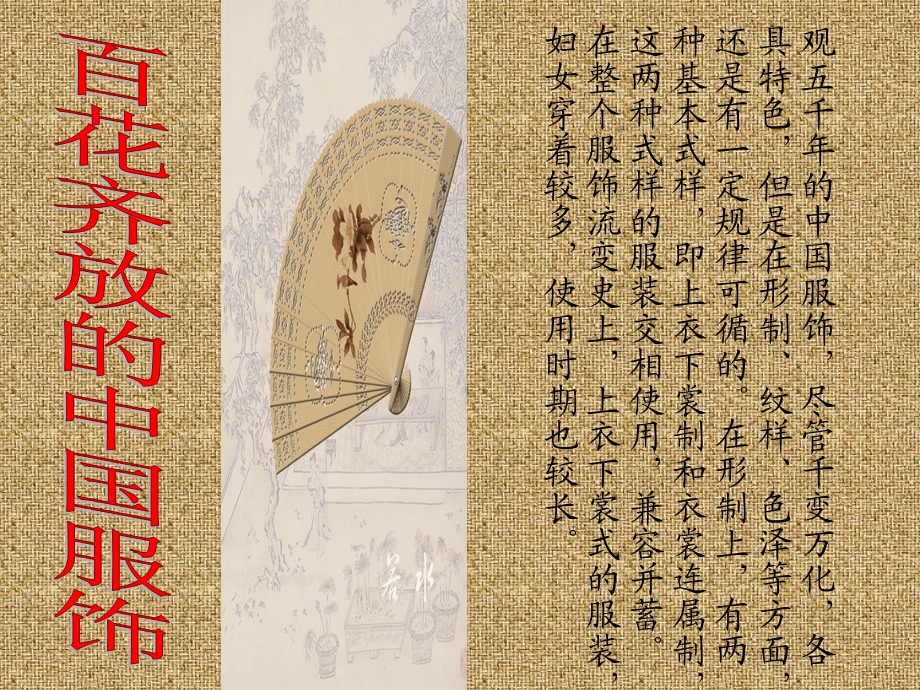 百花齐放的中国服饰
观五千年的中国服饰，尽管千变万化，各
具特色，但是在形制、纹样、色泽等方面，
还是有一定规律可循的。在形制上，有两
种基本式样，即上衣下裳制和衣裳连属制，
这两种式样的服装交相使用，兼容并蓄。
在整个服饰流变史上，上衣下裳式的服装，
妇女穿着较多，使用时期也较长。
若水